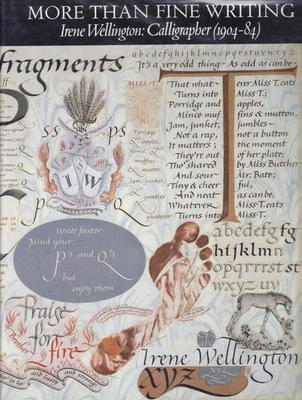 MORE THAN FINE WRITING
Irene Wellington: Calligrapher (1904-84)
abcdefghijklmnopqrstuvwxyz
It's a very odd thing - As odd as can be -
fragments
That what-ever Miss T. eats
Turns into Miss T.;
Porridge and apples,
Mince muf fins & mutton,
Jam, junket, jumbles -
Not a rap, not a button
It matters; the moment
They're out of her plate,
Tho' shared by Miss Butcher
And sour Mr. Bate;
Tiny & cheer ful,
And neat as can be,
Whatever Miss T. eats
Turns into Miss T.
T
ss
ps
I W
Write faster
Mind your
P's and Q's
but
enjoy them
abcdefg
hijklmn
opqrstu
wxyz uv
Praise
for
fire
Irene Wellington
xyz
xyz
and lusty and strong